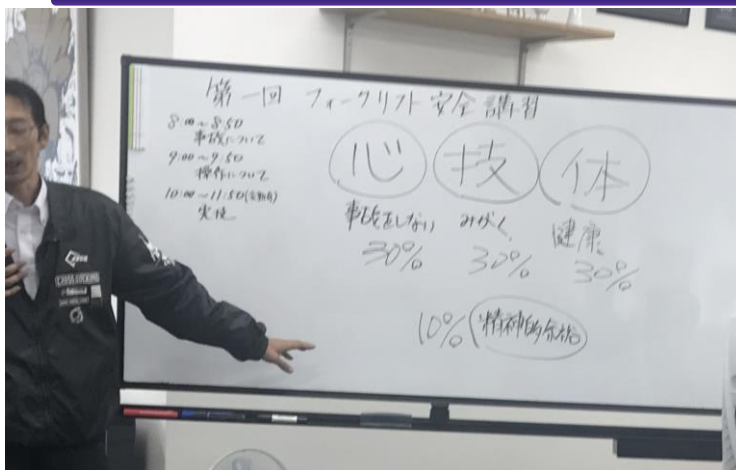 第一回 フォークリフト安全講習
8:00~8:50
事故について
9:00~9:50
操作について
10:00~11:50
実技
心 技 体
事故をしない みがく 健康
30% 30% 30%
10% 精神的余裕